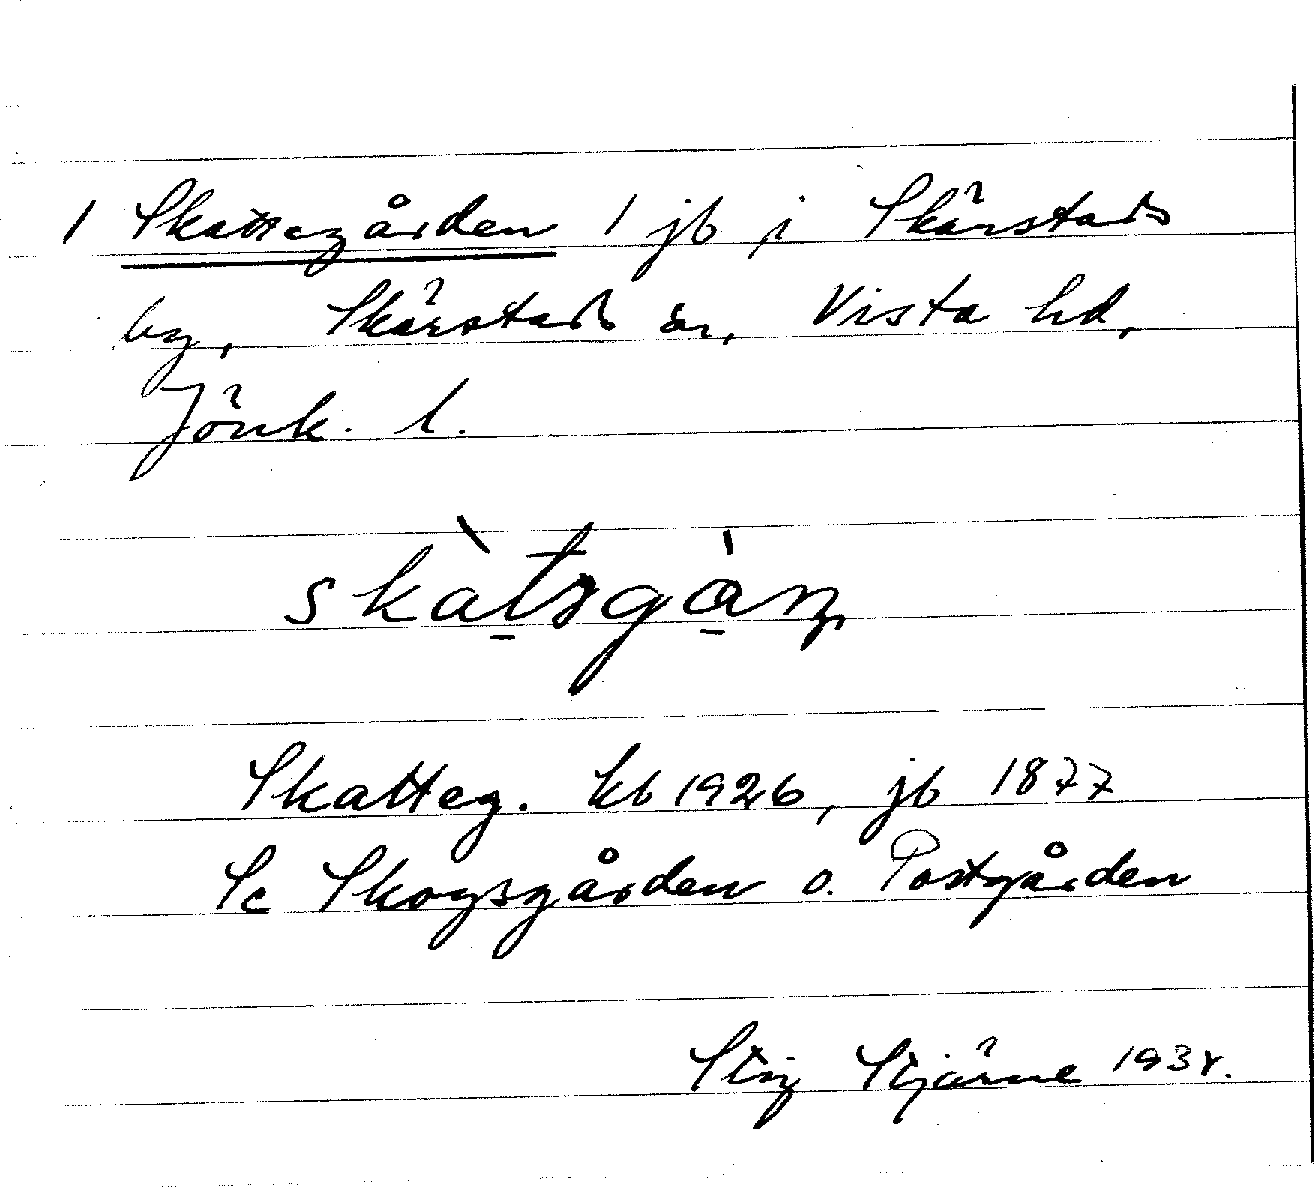 1 Skattegården 1 jb i Skärstads
by, Skärstads sn, Vista hd,
Jönk. l.
skàtsgàṇ
Skatteg. kb 1926, jb 1877
Se Skogsgården o. Postgården
Stig Stjärne